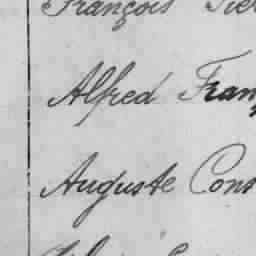 François
Alfred Fran
Auguste Cons